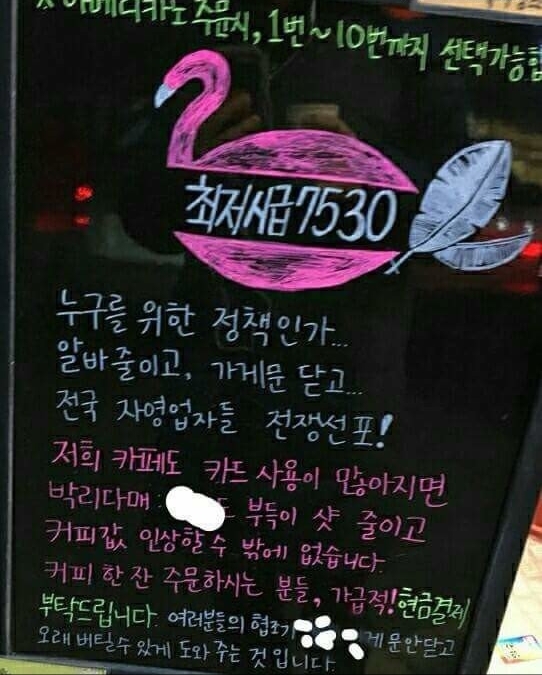 아메리카노 주문시, 1번~10번까지 선택가능합
최저시급 7530
누구를 위한 정책인가...
알바 줄이고, 가게문 닫고...
전국 자영업자들 전쟁선포!
저희 카페도 카드 사용이 많아지면
박리다매 도 부득이 샷 줄이고
커피값 인상할 수 밖에 없습니다.
커피 한 잔 주문하시는 분들, 가급적! 현금결제
부탁드립니다. 여러분들의 협조가 게 문 안닫고
오래 버틸 수 있게 도와 주는 것 입니다.